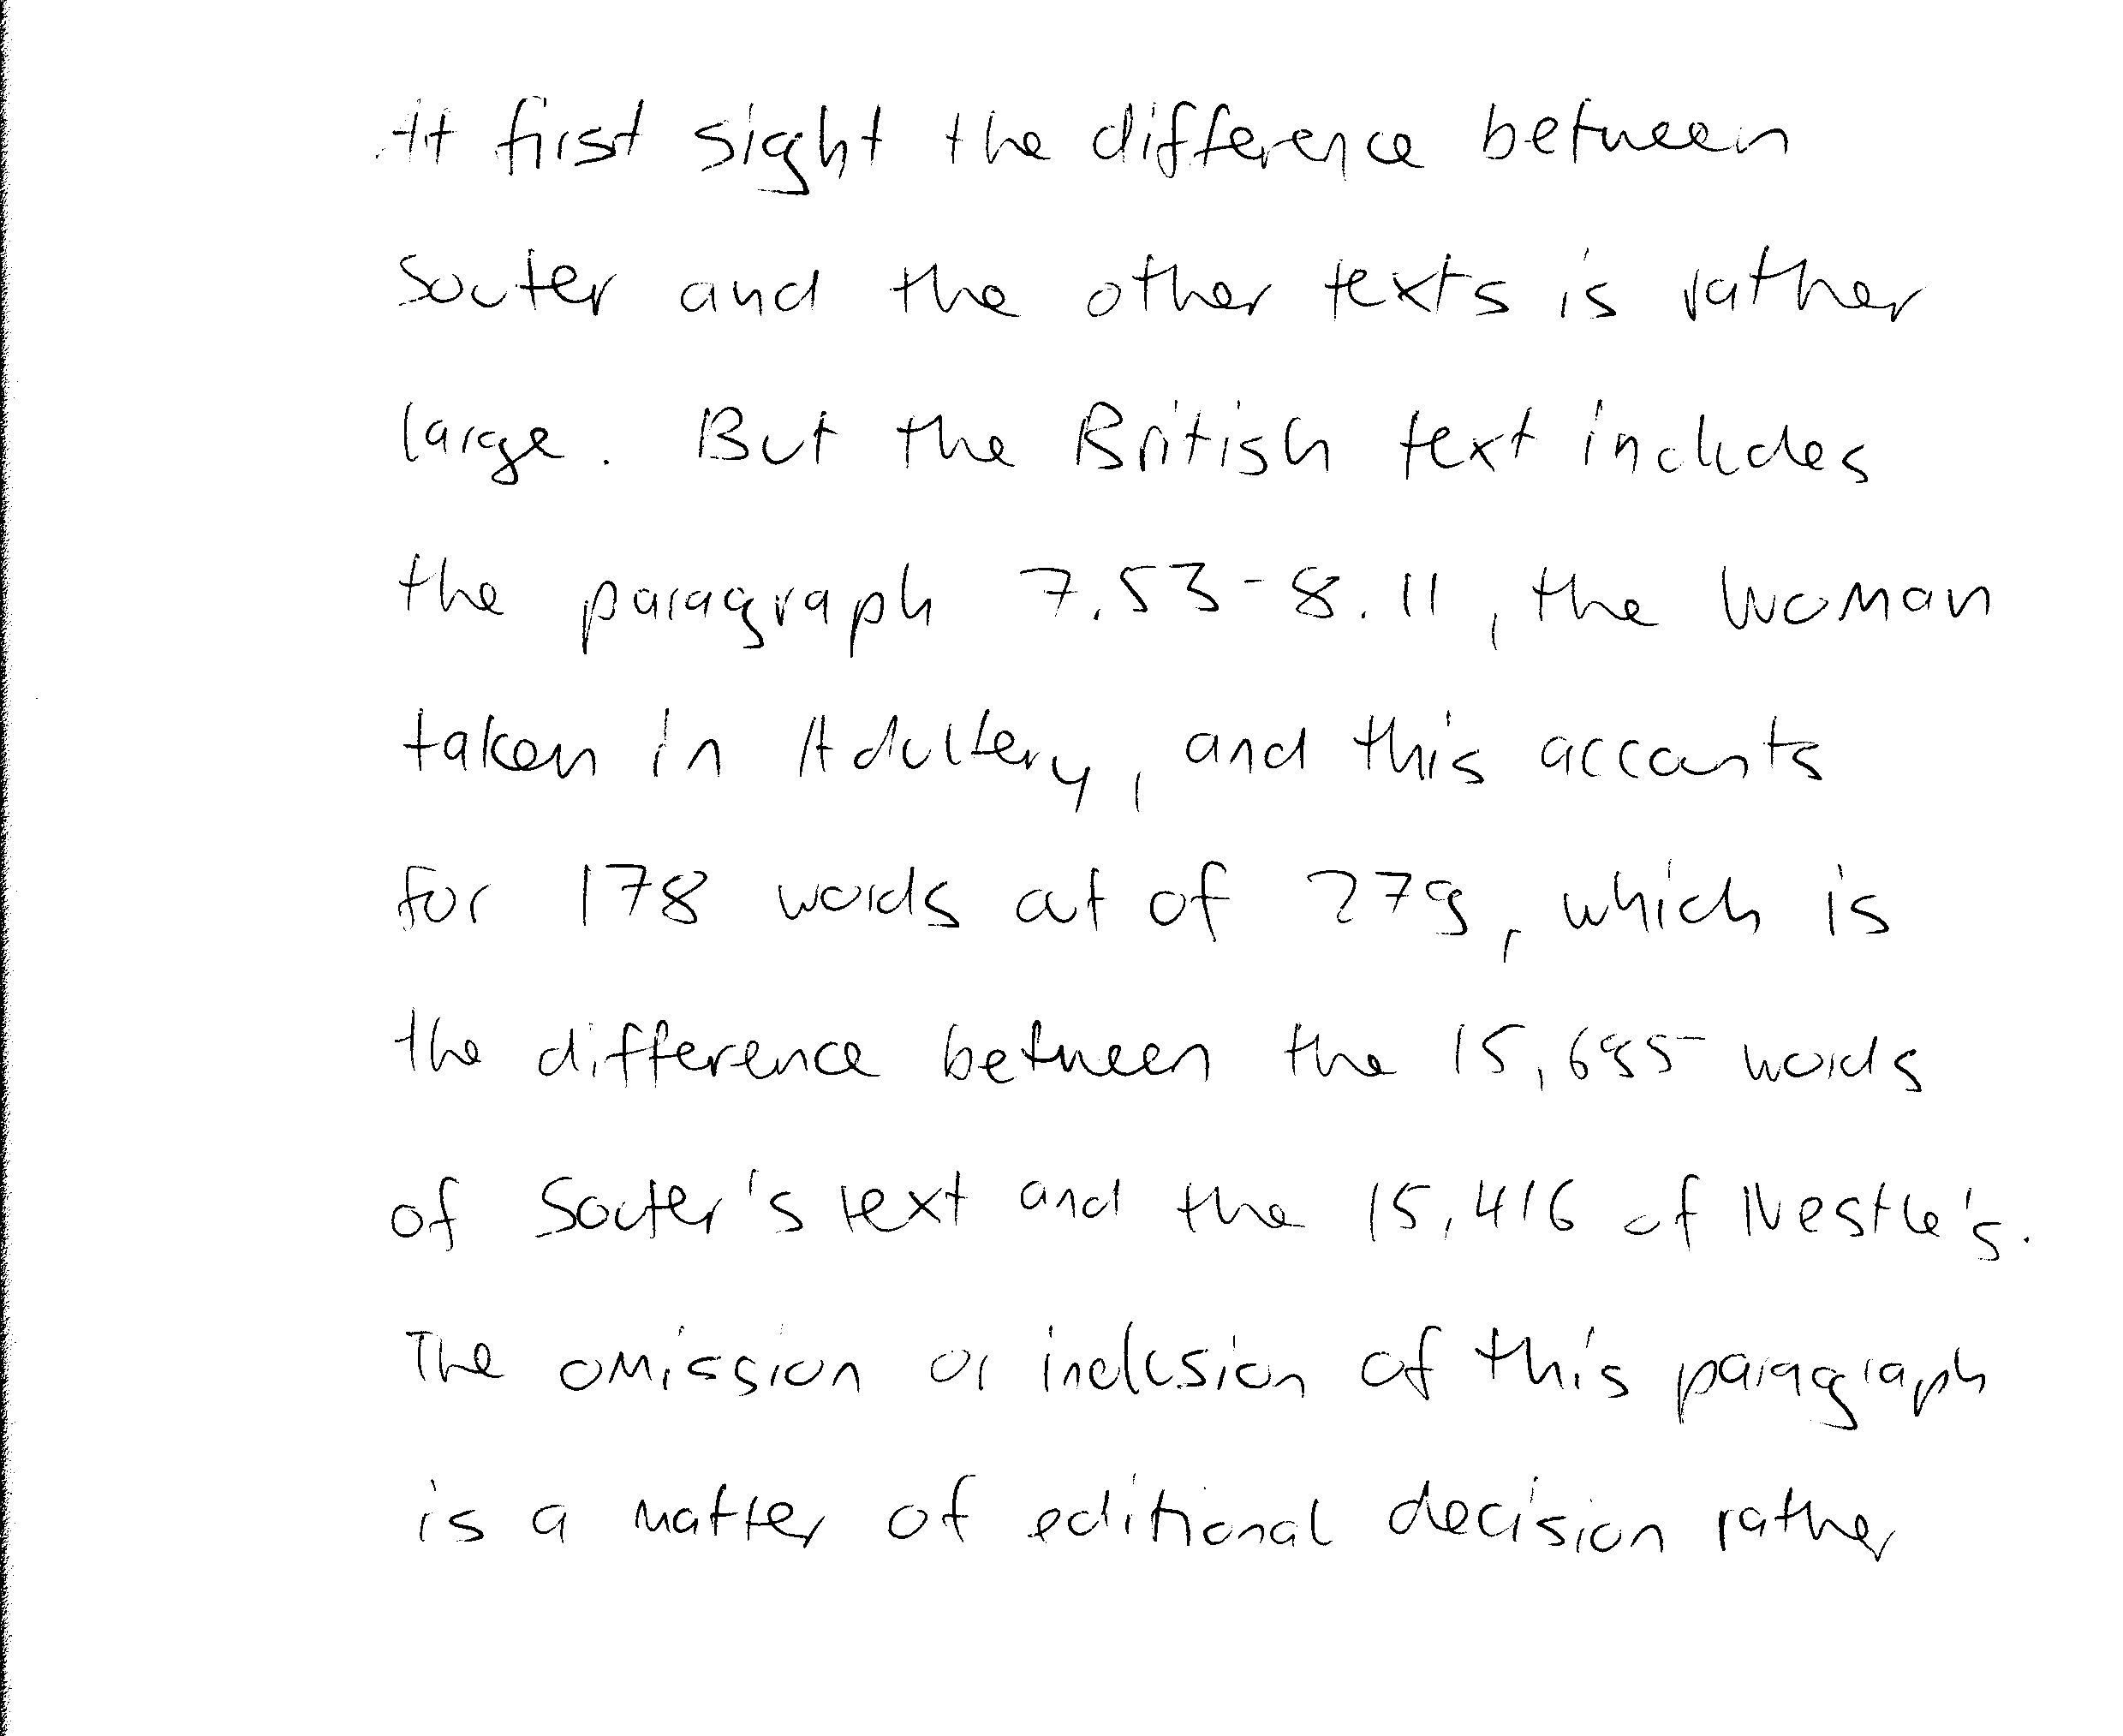 At first sight the difference between
Souter and the other texts is rather
large. But the British text includes
the paragraph 7.53-8.11, the Woman
taken in Adultery, and this accounts
for 178 words out of 279, which is
the difference between the 15,695 words
of Souter's text and the 15,416 of Nestle's.
The omission or inclusion of this paragraph
is a matter of editional decision rather